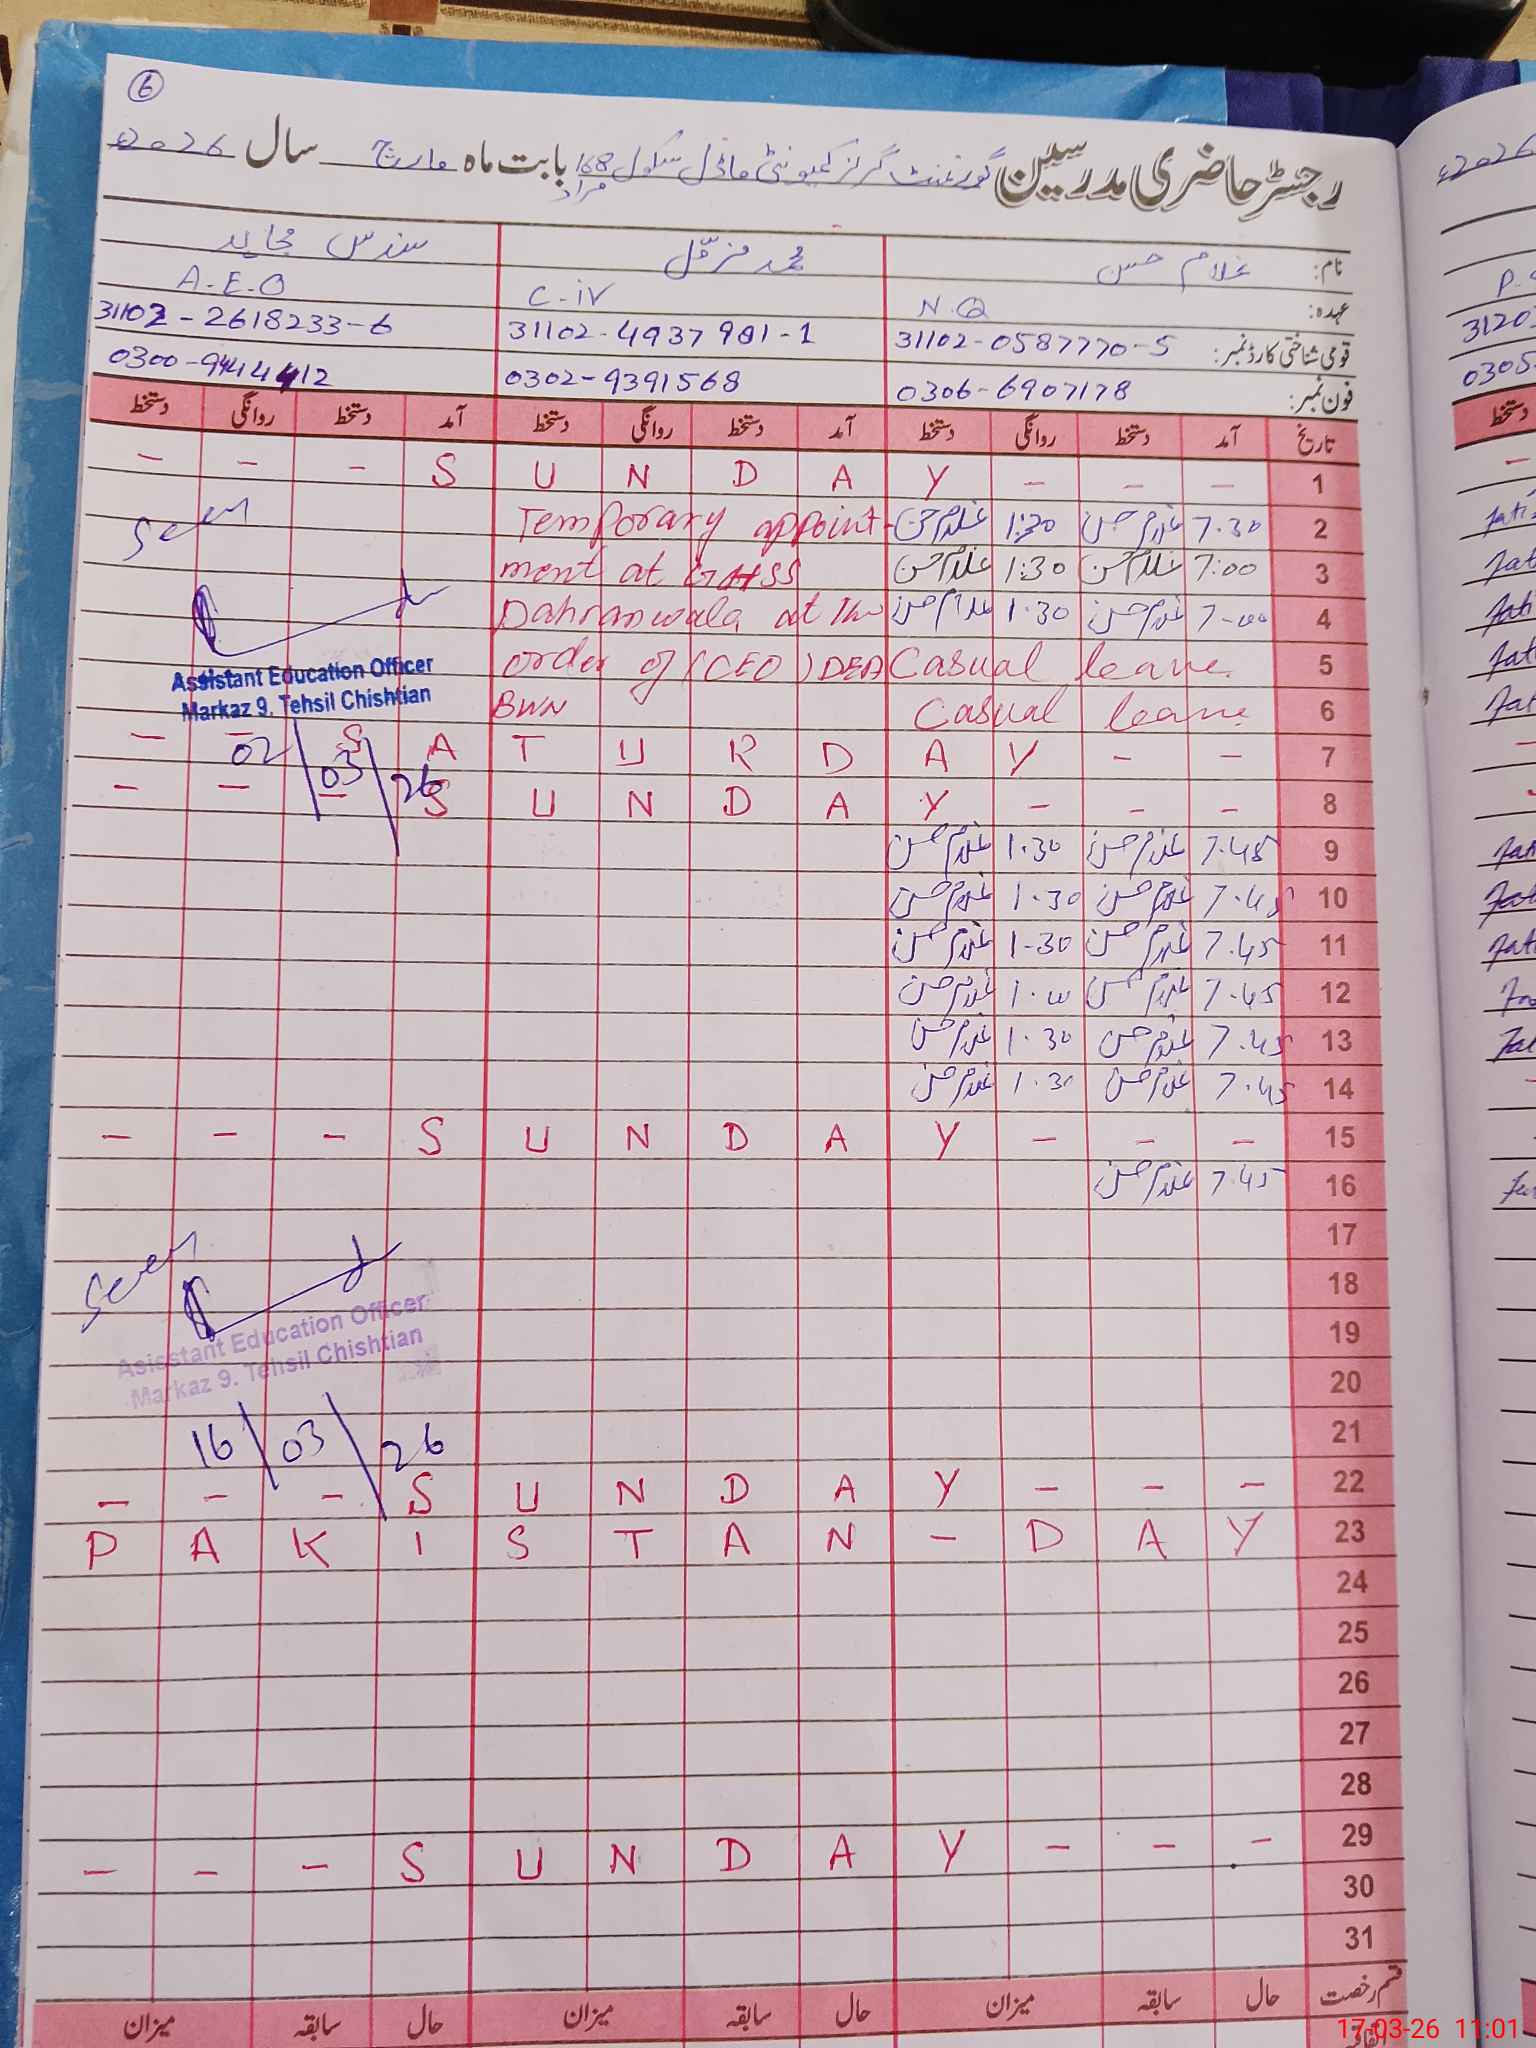 6
رجسٹر حاضری مدرسین گورنمنٹ گرلز کمیونٹی ماڈل سکول 168 مراد بابت ماہ مارچ سال 2026
نام: غلام حسن محمد مزمل سندس مجاہد
عہدہ: N.Q C-iV A.E.O
قومی شناختی کارڈ نمبر: 31102-0587770-5 31102-4937901-1 31102-2618233-6
فون نمبر: 0306-6907178 0302-9391568
تاریخ آمد دستخط روانگی دستخط آمد دستخط روانگی دستخط آمد دستخط روانگی دستخط
1 - - - S U N D A Y - - -
2 7.30 غلام حسن 1:30 غلام حسن Temporary appoint-
3 7:00 غلام حسن 1:30 غلام حسن ment at GHSS
4 7-00 غلام حسن 1.30 غلام حسن Dahranwala at the
5 Casual leave order of (CEO) DEA
6 Casual leave BWN
7 - - S A T U R D A Y - -
8 - - - S U N D A Y - - -
9 7.45 غلام حسن 1.30 غلام حسن
10 7.45 غلام حسن 1.30 غلام حسن
11 7.45 غلام حسن 1-30 غلام حسن
12 7.45 غلام حسن 1.30 غلام حسن
13 7.45 غلام حسن 1.30 غلام حسن
14 7.45 غلام حسن 1.30 غلام حسن
15 - - - S U N D A Y - - -
16 7.45 غلام حسن
17
18
19
20
21
22 - - - S U N D A Y - - -
23 P A K I S T A N - D A Y
24
25
26
27
28
29 - - - S U N D A Y - - -
30
31
قسم رخصت حال سابقہ میزان حال سابقہ میزان حال سابقہ میزان
Seen
Assistant Education Officer
Markaz 9. Tehsil Chishtian
02/03/26
Seen
Asisstant Education Officer
Markaz 9. Tehsil Chishtian
16/03/26
2026
دستخط
17-03-26 11:01